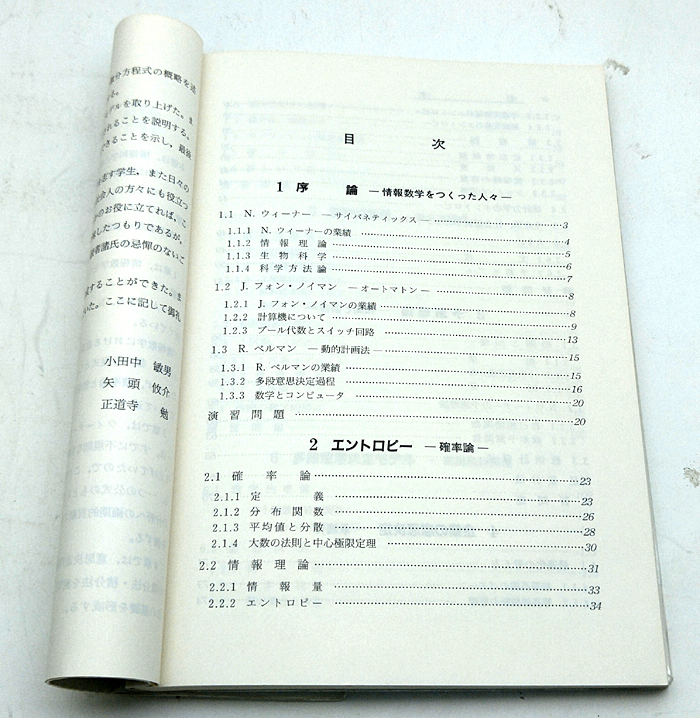 分方程式の概略を述
デルを取り上げた。ま
れることを説明する。
きることを示し、最後
志す学生，また日々の
会人の方々にも役立つ
のお役に立てれば，こ
したつもりであるが，
者諸氏の忌憚のないご
することができた。ま
いた。ここに記して御礼
小田中 敏男
矢頭 攸介
正道寺 勉
目 次
1 序 論 ―情報数学をつくった人々―
1.1 N. ウィーナー ―サイバネティックス― 3
1.1.1 N. ウィーナーの業績 4
1.1.2 情報理論 5
1.1.3 生物科学 6
1.1.4 科学方法論 7
1.2 J. フォン・ノイマン ―オートマトン― 8
1.2.1 J. フォン・ノイマンの業績 8
1.2.2 計算機について 9
1.2.3 ブール代数とスイッチ回路 13
1.3 R. ベルマン ―動的計画法― 15
1.3.1 R. ベルマンの業績 15
1.3.2 多段意思決定過程 16
1.3.3 数学とコンピュータ 20
演習問題 20
2 エントロピー ―確率論―
2.1 確率論 23
2.1.1 定義 23
2.1.2 分布関数 26
2.1.3 平均値と分散 28
2.1.4 大数の法則と中心極限定理 30
2.2 情報理論 31
2.2.1 情報量 33
2.2.2 エントロピー 34